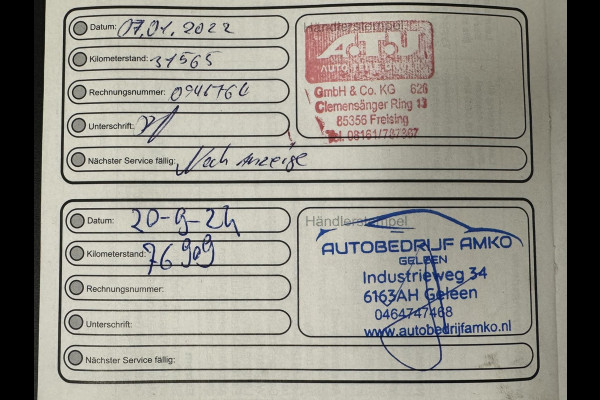 Datum: 07.01.2022
Kilometerstand: 31565
Rechnungsnummer:
Unterschrift:
Nächster Service fällig: Nach Anzeige
Händlerstempel
ATU
AUTO TEILE UNGER
GmbH & Co. KG 626
Clemensänger Ring 13
85356 Freising
Tel. 08161/787367
Datum: 20-9-24
Kilometerstand: 76909
Rechnungsnummer:
Unterschrift:
Nächster Service fällig:
Händlerstempel
AUTOBEDRIJF AMKO
GELEEN
Industrieweg 34
6163AH Geleen
0464747468
www.autobedrijfamko.nl